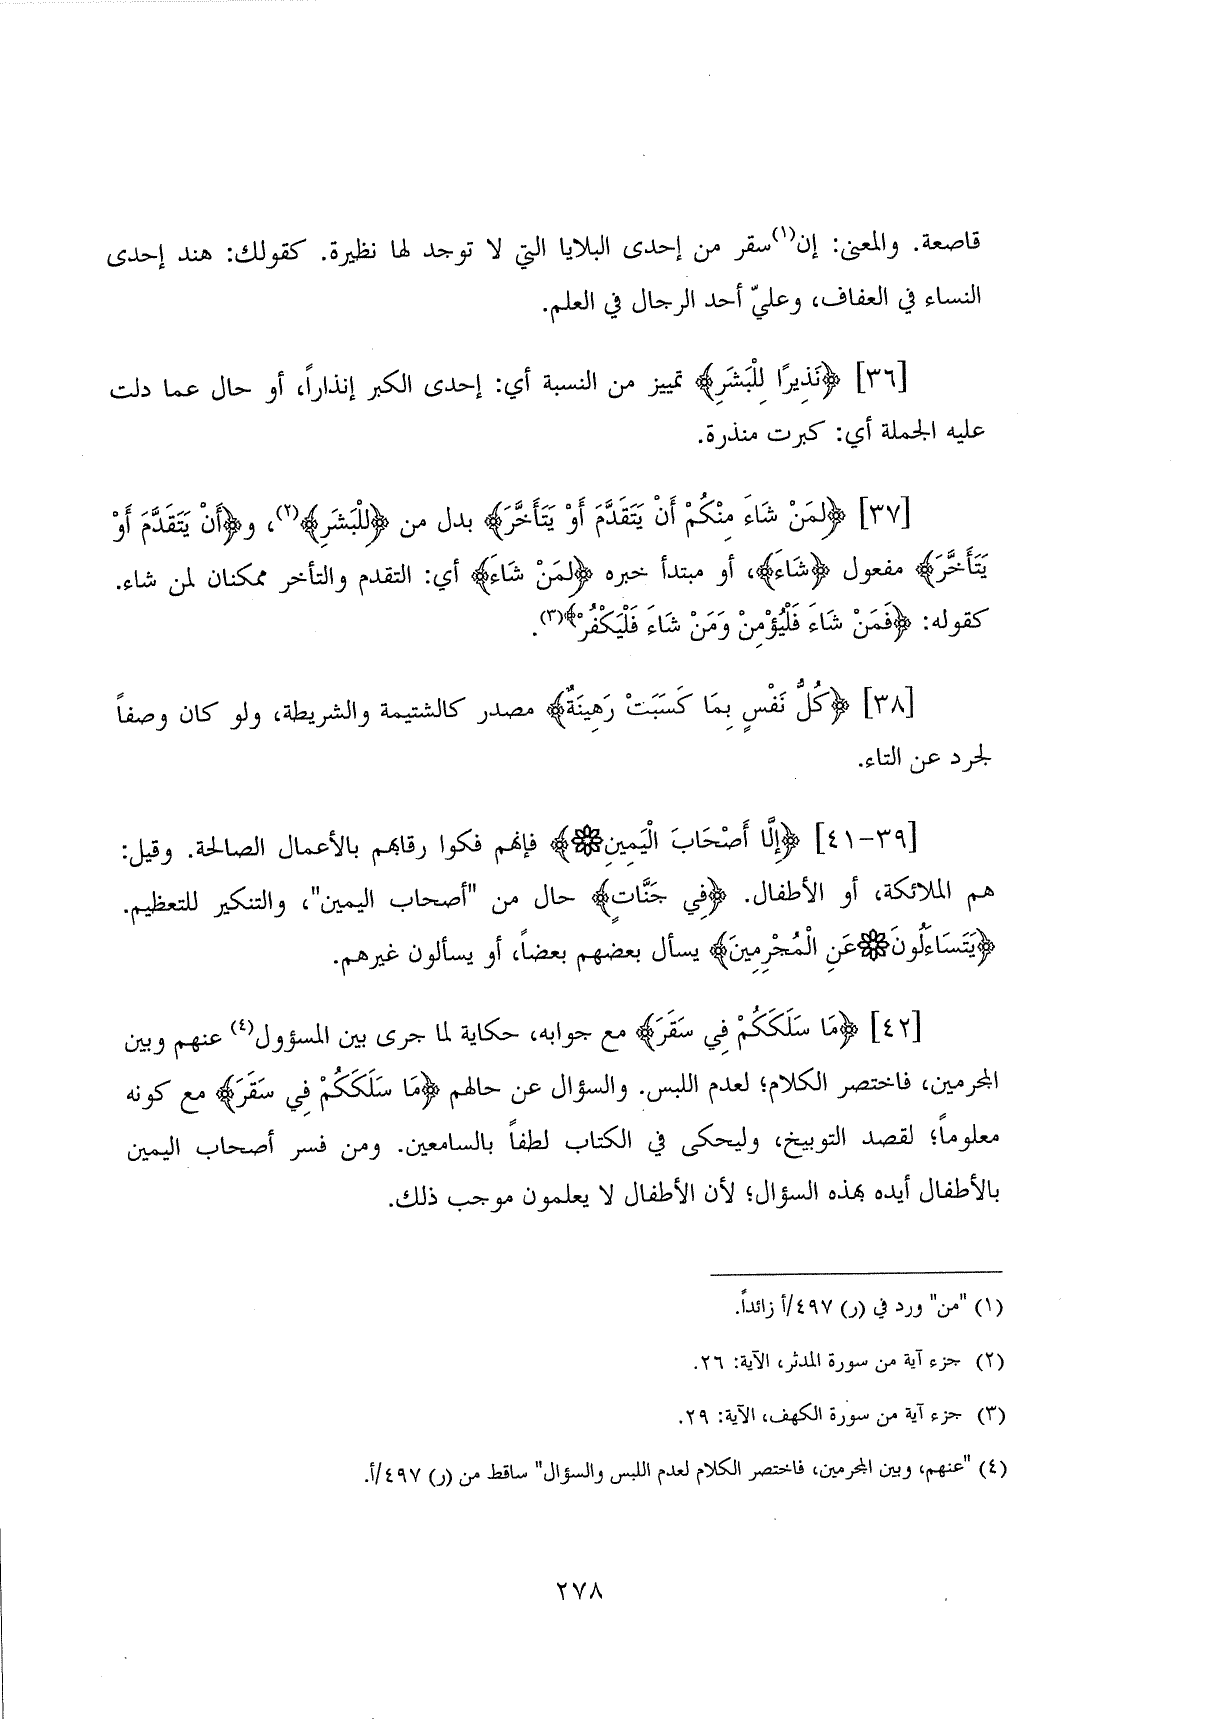 قاصعة. والمعنى: إن(١)سقر من إحدى البلايا التي لا توجد لها نظيرة. كقولك: هند إحدى
النساء في العفاف، وعليّ أحد الرجال في العلم.
[٣٦] ﴿نَذِيرًا لِلْبَشَرِ﴾ تمييز من النسبة أي: إحدى الكبر إنذاراً، أو حال عما دلت
عليه الجملة أي: كبرت منذرة.
[٣٧] ﴿لِمَنْ شَاءَ مِنْكُمْ أَنْ يَتَقَدَّمَ أَوْ يَتَأَخَّرَ﴾ بدل من ﴿لِلْبَشَرِ﴾(٢)، و﴿أَنْ يَتَقَدَّمَ أَوْ
يَتَأَخَّرَ﴾ مفعول ﴿شَاءَ﴾، أو مبتدأ خبره ﴿لِمَنْ شَاءَ﴾ أي: التقدم والتأخر ممكنان لمن شاء.
كقوله: ﴿فَمَنْ شَاءَ فَلْيُؤْمِنْ وَمَنْ شَاءَ فَلْيَكْفُرْ﴾(٣).
[٣٨] ﴿كُلُّ نَفْسٍ بِمَا كَسَبَتْ رَهِينَةٌ﴾ مصدر كالشتيمة والشريطة، ولو كان وصفاً
لجرد عن التاء.
[٣٩-٤١] ﴿إِلَّا أَصْحَابَ الْيَمِينِ❁﴾ فإنهم فكوا رقابهم بالأعمال الصالحة. وقيل:
هم الملائكة، أو الأطفال. ﴿فِي جَنَّاتٍ﴾ حال من "أصحاب اليمين"، والتنكير للتعظيم.
﴿يَتَسَاءَلُونَ❁عَنِ الْمُجْرِمِينَ﴾ يسأل بعضهم بعضاً، أو يسألون غيرهم.
[٤٢] ﴿مَا سَلَكَكُمْ فِي سَقَرَ﴾ مع جوابه، حكاية لما جرى بين المسؤول(٤) عنهم وبين
المجرمين، فاختصر الكلام؛ لعدم اللبس. والسؤال عن حالهم ﴿مَا سَلَكَكُمْ فِي سَقَرَ﴾ مع كونه
معلوماً؛ لقصد التوبيخ، وليحكى في الكتاب لطفاً بالسامعين. ومن فسر أصحاب اليمين
بالأطفال أيده بهذه السؤال؛ لأن الأطفال لا يعلمون موجب ذلك.
(١) "من" ورد في (ر) ٤٩٧/أ زائداً.
(٢) جزء آية من سورة المدثر، الآية: ٢٦.
(٣) جزء آية من سورة الكهف، الآية: ٢٩.
(٤) "عنهم، وبين المجرمين، فاختصر الكلام لعدم اللبس والسؤال" ساقط من (ر) ٤٩٧/أ.
٢٧٨